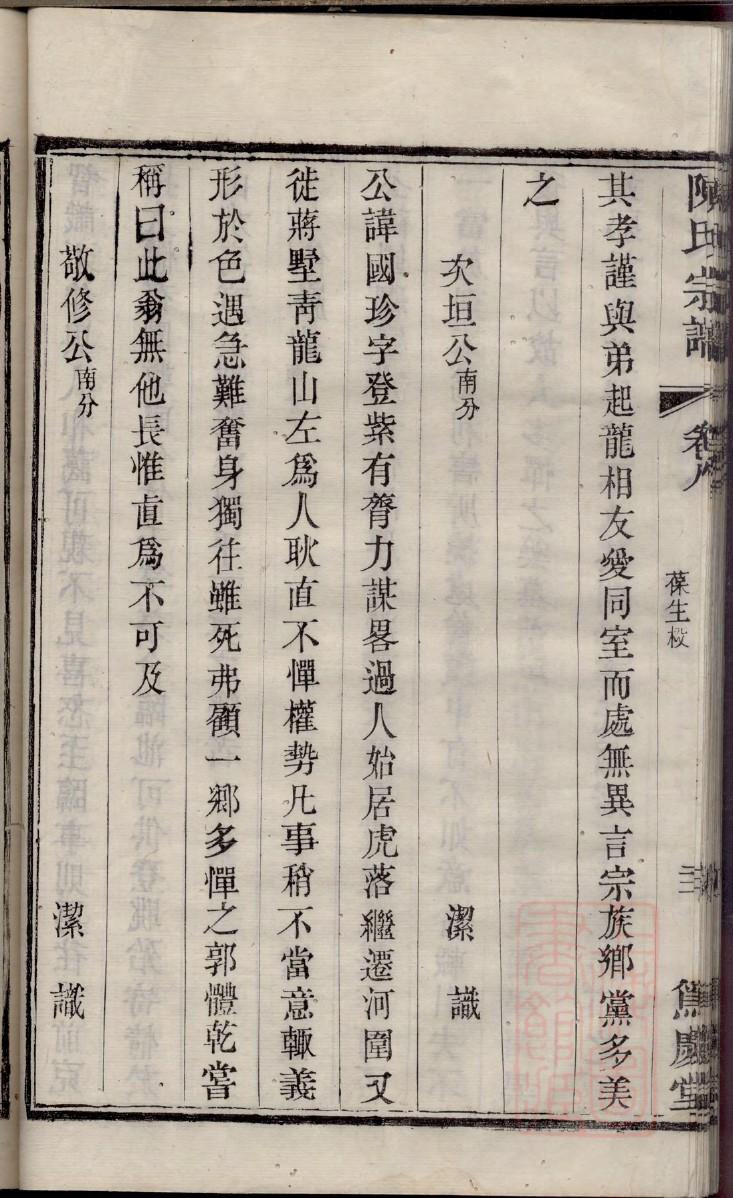 陳氏宗譜
卷八
葆生
篤慶堂
其孝謹與弟起龍相友愛同室而處無異言宗族鄉黨多美
之
次垣公南分 潔識
公諱國珍字登紫有膂力謀畧過人始居虎落繼遷河圍又
徙蔣墅靑龍山左爲人耿直不憚權勢凡事稍不當意輙義
形於色遇急難奮身獨往雖死弗顧一鄉多憚之郭體乾嘗
稱曰此翁無他長惟直爲不可及
敬修公南分 潔識